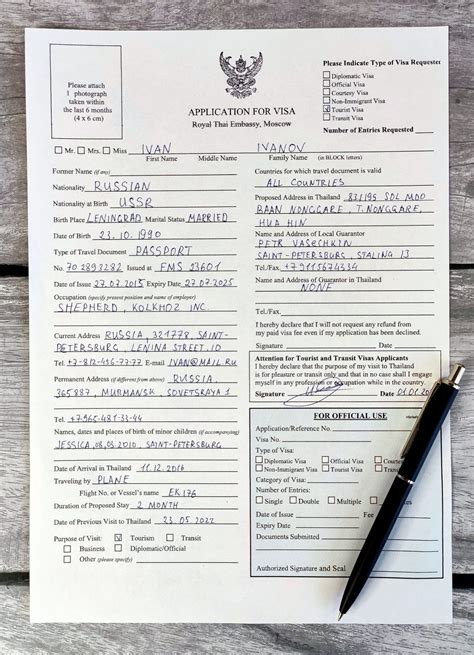 Please attach
1 photograph
taken within
the last 6 months
(4 x 6 cm)
APPLICATION FOR VISA
Royal Thai Embassy, Moscow
Please Indicate Type of Visa Requested
Diplomatic Visa
Official Visa
Courtesy Visa
Non-Immigrant Visa
V Tourist Visa
Transit Visa
Number of Entries Requested
Mr. Mrs. Miss IVAN IVANOV
First Name Middle Name Family Name (in BLOCK letters)
Former Name (if any)
Nationality RUSSIAN
Nationality at Birth USSR
Birth Place LENINGRAD Marital Status MARRIED
Date of Birth 23.10.1990
Type of Travel Document PASSPORT
No. 70 2893282 Issued at FMS 23601
Date of Issue 27.07.2015 Expiry Date 27.07.2025
Occupation (specify present position and name of employer)
SHEPHERD, KOLKHOZ INC.
Current Address RUSSIA, 321778, SAINT-
PETERSBURG, LENINA STREET, 10
Tel. +7-812-456-77-77 E-mail IVAN@MAIL.RU
Permanent Address (if different from above) RUSSIA,
365887, MURMANSK, SOVETSRAYA 1
Tel. +7-965-487-33-44
Names, dates and places of birth of minor children (if accompanying)
JESSICA, 08.05.2010, SAINT-PETERSBURG
Date of Arrival in Thailand 11.12.2016
Traveling by PLANE
Flight No. or Vessel's name EK 176
Duration of Proposed Stay 2 MONTH
Date of Previous Visit to Thailand 23.05.2022
Purpose of Visit: V Tourism Transit
Business Diplomatic/Official
Other (please specify)
Countries for which travel document is valid
ALL COUNTRIES
Proposed Address in Thailand 83/195 SOL MOO
BAAN NONGGARE, T. NONGGARE,
HUA HIN
Name and Address of Local Guarantor
PETR VASECHKIN
SAINT-PETERSBURG, STALINA 13
Tel./Fax. +79115674334
Name and Address of Guarantor in Thailand
NONE
Tel./Fax.
I hereby declare that I will not request any refund from my
paid visa fee even if my application has been declined.
Signature Date
Attention for Tourist and Transit Visas Applicants
I hereby declare that the purpose of my visit to Thailand
is for pleasure or transit only and that in no case shall I engage
myself in any profession or occupation while in the country.
Signature Date 01.01.20
FOR OFFICIAL USE
Application/Reference No.
Visa No.
Type of Visa:
Diplomatic Visa Official Visa
Non-Immigrant Visa Tourist Visa
Category of Visa:
Number of Entries:
Single Double Multiple
Date of Issue
Expiry Date
Documents Submitted
Authorized Signature and Seal